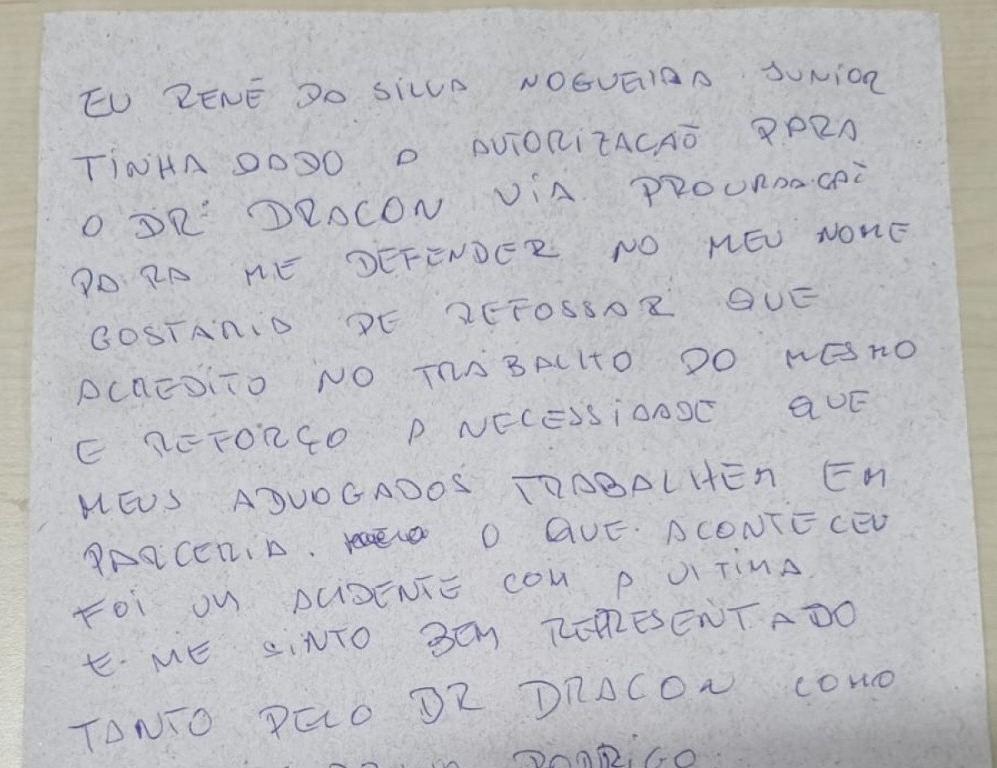 EU RENÊ DA SILVA NOGUEIRA JUNIOR
TINHA DADO A AUTORIZACAÕ PARA
O DR DRACON VIA PROCURAACAÕ
PARA ME DEFENDER NO MEU NOME
GOSTARIA DE REFOSSAR QUE
ACREDITO NO TRABALHO DO MESMO
E REFORÇO A NECESSIDADE QUE
MEUS ADVOGADOS TRABALHEM EM
PARCERIA. O QUE ACONTECEU
FOI UM ACIDENTE COM A VITIMA
E ME SINTO BEM REPRESENTADO
TANTO PELO DR DRACON COMO
RODRIGO